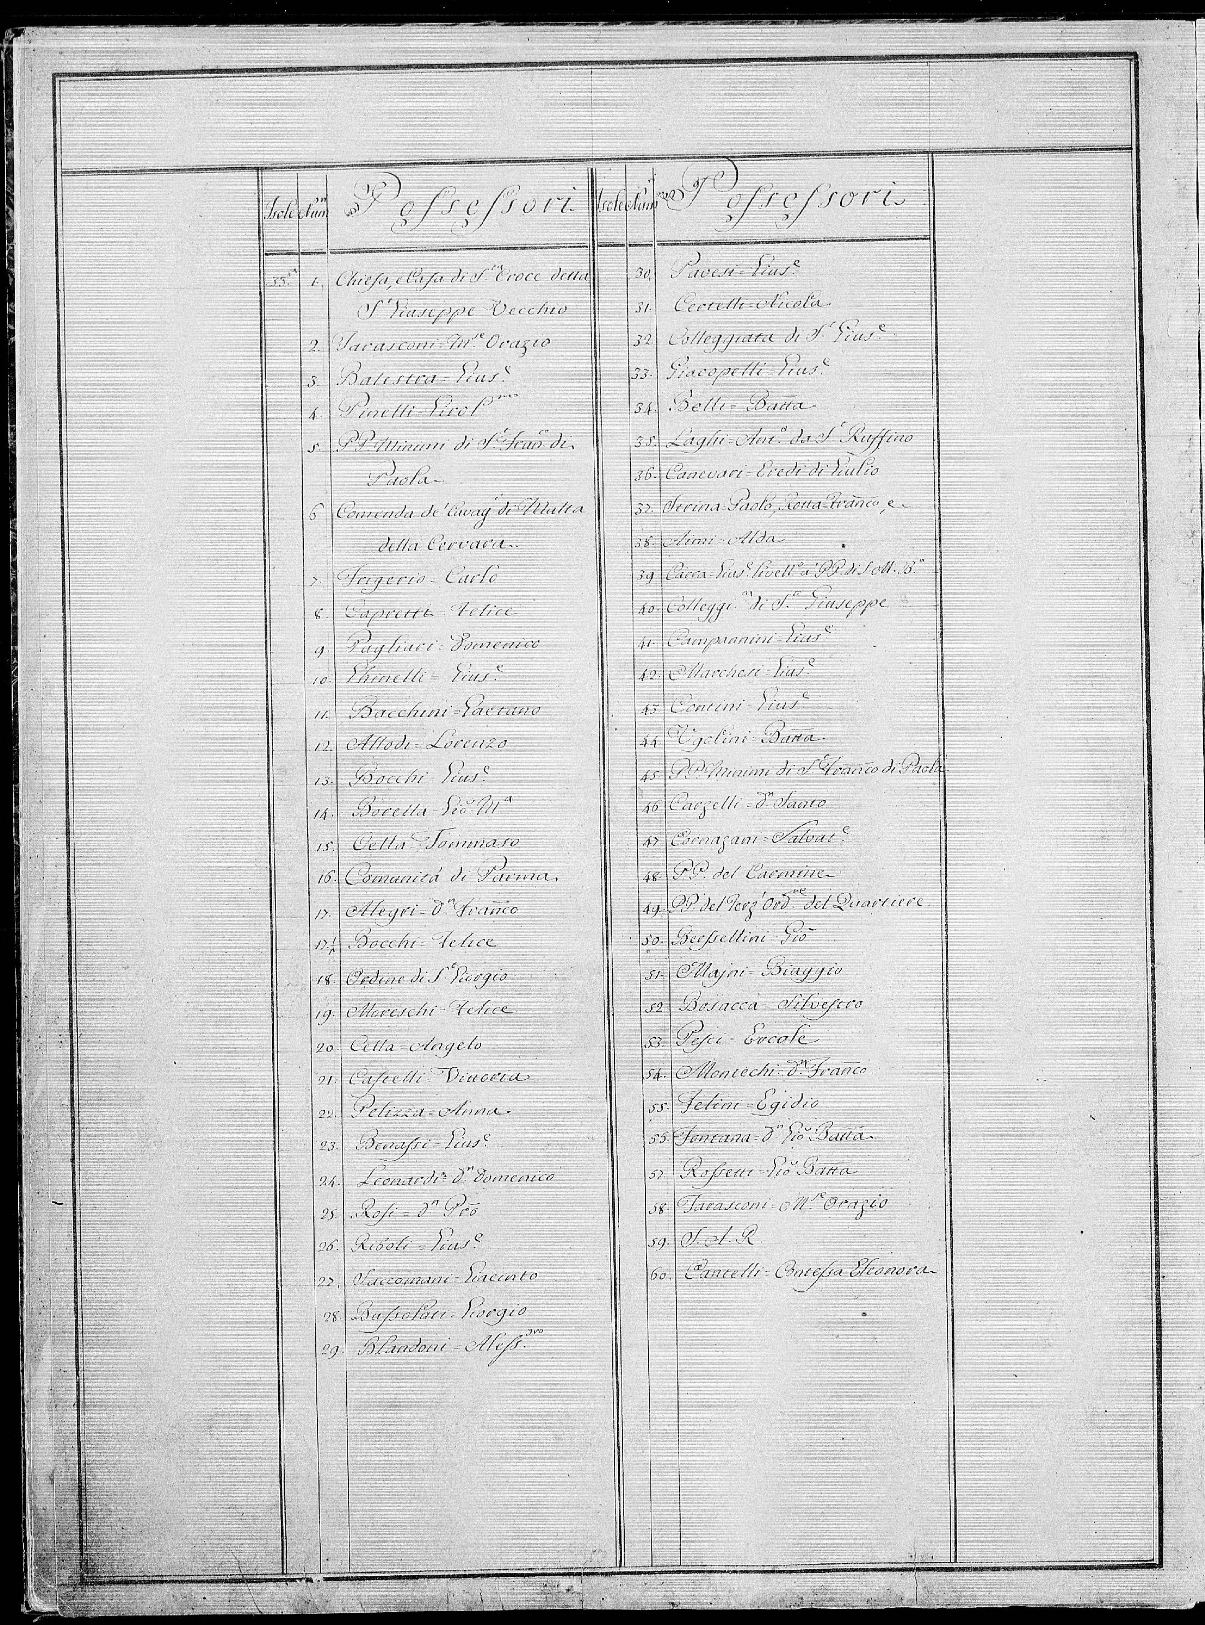 Isole Num Possessori
33. 1. Chiesa, e Casa di S.ª Croce detta
S.ⁿ Giuseppe Vecchio
2. Tarasconi = M.ᵉ Orazio
3. Balestra = Gius.ᵉ
4. Pinetti = Girol.ᵐᵒ
5. PP. Minimi di S.ⁿ Fran.ᶜᵒ di
Paola
6. Comenda de' Cavag.ʳⁱ di Malta
della Cervara
7. Frigerio = Carlo
8. Capretti = Felice
9. Pagliari = Domenico
10. Ghinelli = Gius.ᵉ
11. Bacchini = Gaetano
12. Allodi = Lorenzo
13. Bocchi = Gius.ᵉ
14. Borella = Gio. M.ª
15. Cella = Tommaso
16. Comunità di Parma
17. Alegri = D.ⁿ Franco
17½ Bocchi = Felice
18. Ordine di S.ⁿ Giorgio
19. Mareschi = Felice
20. Cella = Angelo
21. Castelli = Vittoria
22. Pelizza = Anna
23. Benassi = Gius.ᵉ
24. Leonardi = D.ⁿ Domenico
25. Rosi = D.ⁿ Pro
26. Riboli = Gius.ᵉ
27. Saccomani = Giacinto
28. Bussolati = Giorgio
29. Blandoni = Aless.ᵈʳᵒ
Isole Num Possessori
30. Pavesi = Gius.ᵉ
31. Certelli = Nicola
32. Colleggiata di S.ⁿ Gius.ᵉ
33. Giacopelli = Gius.ᵉ
34. Belli = Batta
35. Laghi = Ant.º da S.ⁿ Ruffino
36. Canevari = Eredi di Giulio
37. Ferina = Paolo, Rotta = Franco, e
38. Aimi = Alda
39. Carra = Gius.ᵉ Livell.º a' PP. di S. M. B.ª
40. Colleggi.ᵗª di S.ⁿ Giuseppe
41. Campanini = Gius.ᵉ
42. Marchesi = Gius.ᵉ
43. Contini = Gius.ᵉ
44. Ugolini = Batta
45. PP. Minimi di S.ⁿ Franco di Paola
46. Carzelli = D.ⁿ Santo
47. Cornazani = Salvat.ᵉ
48. PP. del Carmine
49. PP. del Terz' Ord.ⁿᵉ del Quartiere
50. Bersellini = Gio
51. Majni = Biaggio
52. Bosacca = Silvestro
53. Pesci = Ercole
54. Montechi = D.ⁿ Franco
55. Felini = Egidio
55. Fontana = D.ⁿ Gio. Batta
57. Rossetti = Gio. Batta
58. Tarasconi = M.ˢᵉ Orazio
59. S. A. R.
60. Cantelli = Contessa Eleonora